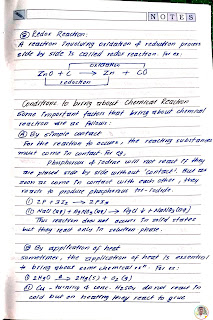 NOTES
⑤ Redox Reaction:
A reaction involving oxidation & reduction process
side by side is called redox reaction. For ex:
oxidation
ZnO + C → Zn + CO
reduction
Conditions to bring about Chemical Reaction
Some important factors that bring about chemical
reaction are as follows:
Ⓐ By simple contact
For the reaction to occurs, the reacting substances
must come in contact. For eg,
Phosphorus & Iodine will not react if they
are placed side by side without contact. But as
soon as come in contact with each other, they
reacts to produce phosphorus tri-iodide.
① 2P + 3I₂ → 2PI₃
② NaCl (aq) + AgNO₃ (aq) → AgCl ↓ + NaNO₃ (aq)
This reaction does not occurs in solid states
but they react only in solution phase.
Ⓑ By application of heat
Sometimes, the application of heat is essential
to bring about some chemical rxⁿ. For ex:
① 2HgO → 2Hg(s) + O₂ (g)
② Cu-turning & conc. H₂SO₄ do not react in
cold but on heating they react to give